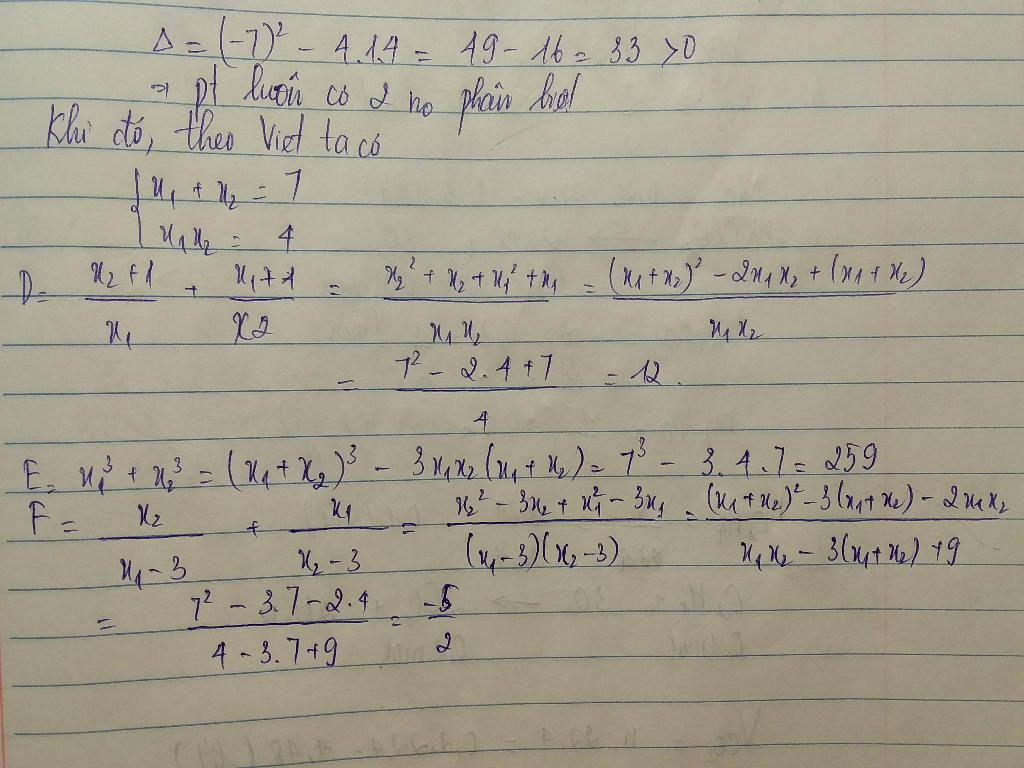 Δ = (-7)² - 4.1.4 = 49 - 16 = 33 >0
⇒ pt luôn có 2 no phân biệt
Khi đó, theo Viet ta có
{ x₁ + x₂ = 7
x₁x₂ = 4
D = (x₂+1)/x₁ + (x₁+1)/x2 = (x₂² + x₂ + x₁² + x₁)/(x₁x₂) = ((x₁+x₂)² - 2x₁x₂ + (x₁+x₂))/(x₁x₂)
= (7² - 2.4 + 7)/4 = 12.
E = x₁³ + x₂³ = (x₁+x₂)³ - 3x₁x₂(x₁+x₂) = 7³ - 3.4.7 = 259
F = x₂/(x₁-3) + x₁/(x₂-3) = (x₂² - 3x₂ + x₁² - 3x₁)/((x₁-3)(x₂-3)) = ((x₁+x₂)² - 3(x₁+x₂) - 2x₁x₂)/(x₁x₂ - 3(x₁+x₂) + 9)
= (7² - 3.7 - 2.4)/(4 - 3.7 + 9) = -5/2